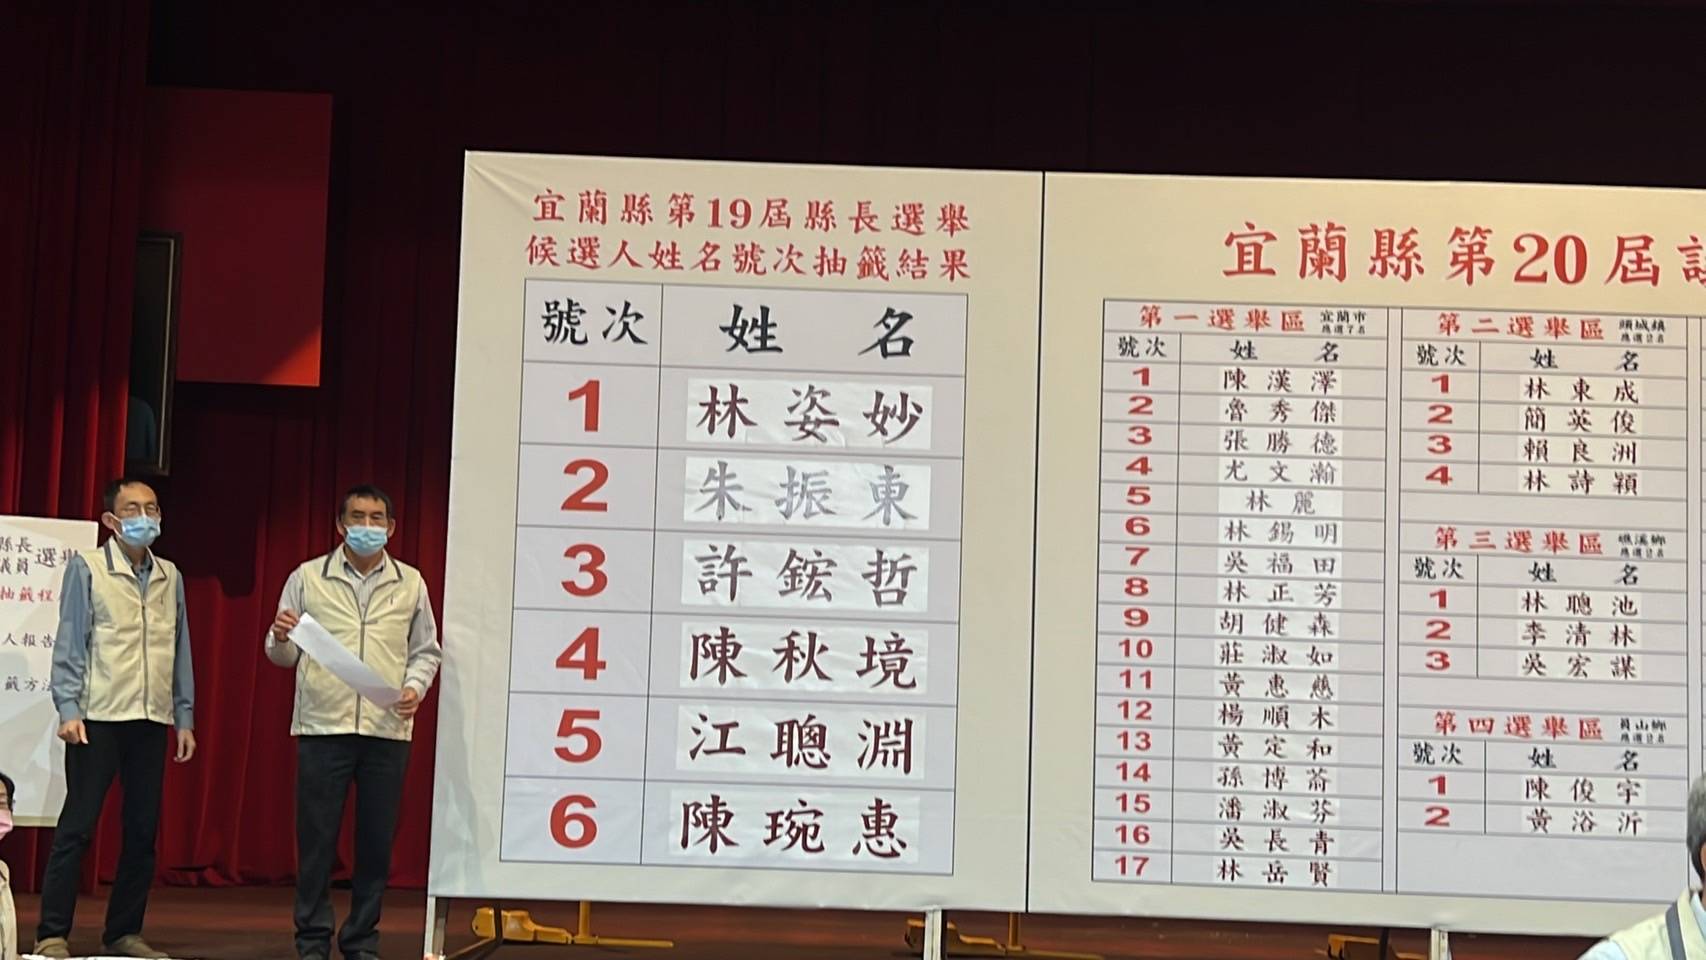 縣長
議員 選舉
抽籤程
人報告
籤方法
宜蘭縣第19屆縣長選舉
候選人姓名號次抽籤結果
號次 姓名
1 林姿妙
2 朱振東
3 許鋐哲
4 陳秋境
5 江聰淵
6 陳琬惠
宜蘭縣第20屆議
第一選舉區 宜蘭市 應選7名
號次 姓名
1 陳漢澤
2 魯秀傑
3 張勝德
4 尤文瀚
5 林麗
6 林錫明
7 吳福田
8 林正芳
9 胡健森
10 莊淑如
11 黃惠慈
12 楊順木
13 黃定和
14 孫博萮
15 潘淑芬
16 吳長青
17 林岳賢
第二選舉區 頭城鎮 應選2名
號次 姓名
1 林東成
2 簡英俊
3 賴良洲
4 林詩穎
第三選舉區 礁溪鄉 應選2名
號次 姓名
1 林聰池
2 李清林
3 吳宏謀
第四選舉區 員山鄉 應選2名
號次 姓名
1 陳俊宇
2 黃浴沂